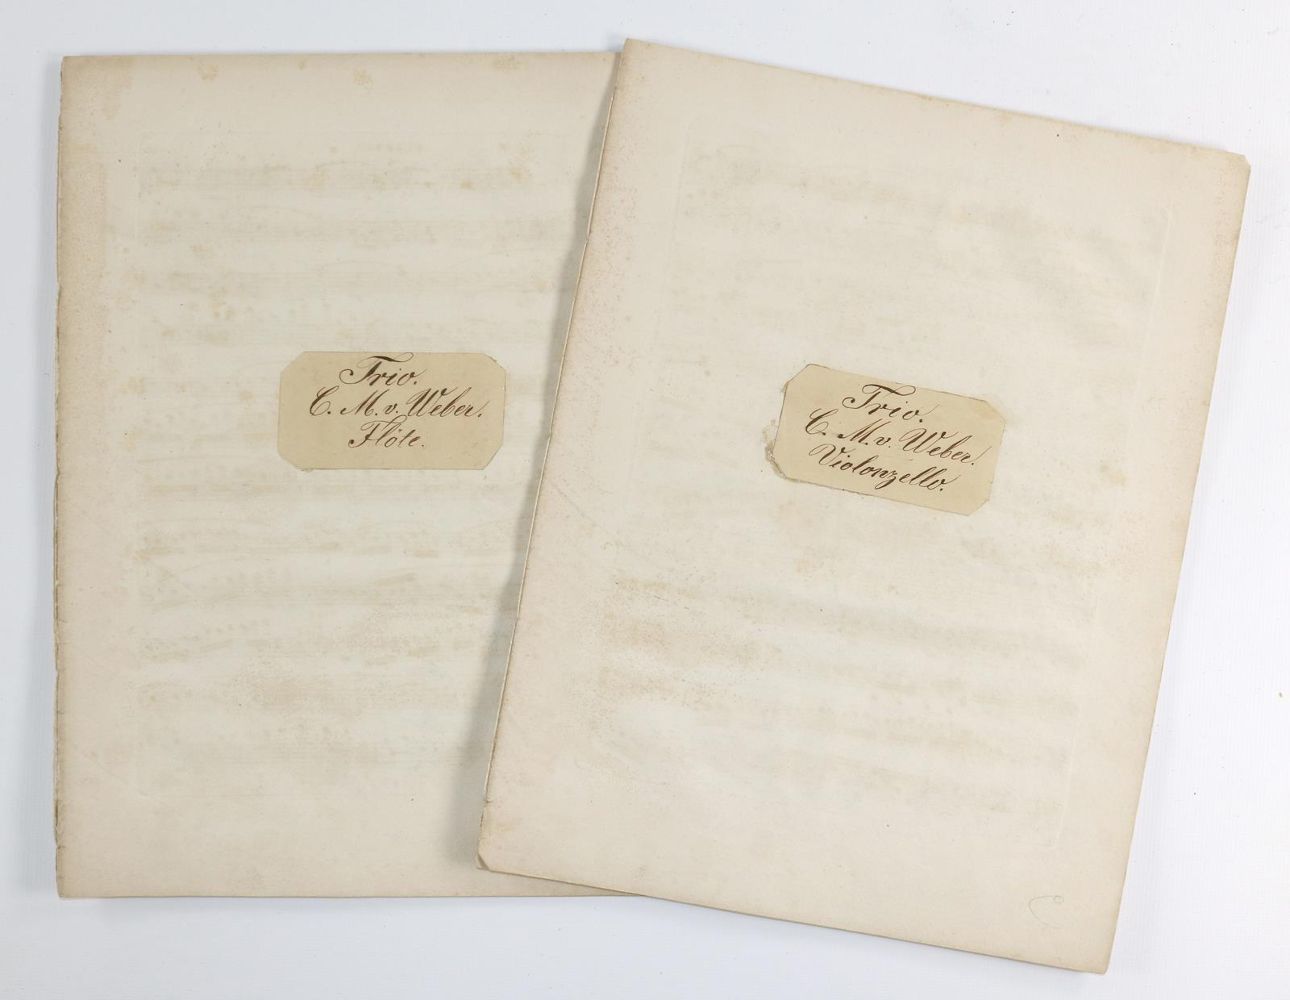 Trio.
C. M. v. Weber.
Flöte.
Trio.
C. M. v. Weber.
Violonzello.